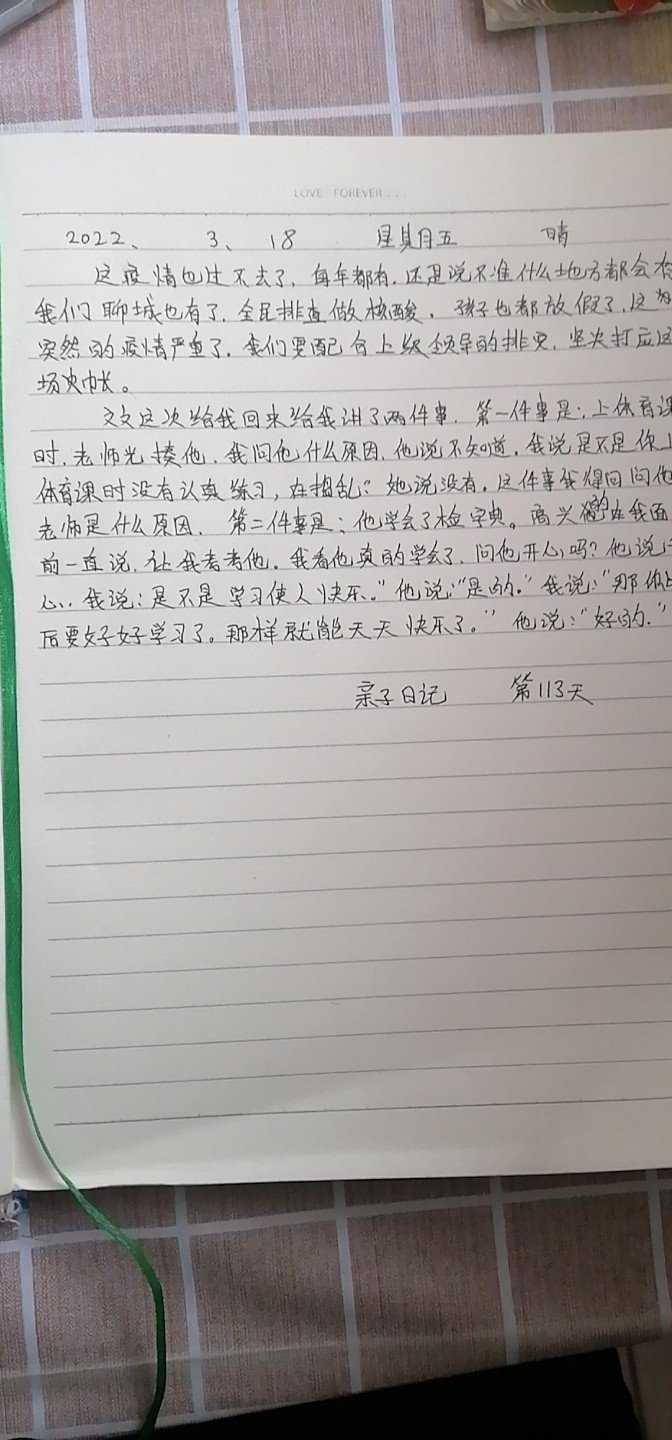 LOVE FOREVER...
2022、 3、 18 星期五 晴
这疫情也过不去了，每年都有，还是说不准什么地方都会有
我们聊城也有了，全民排查做核酸，孩子也都放假了，这为
突然的疫情严重了，我们要配合上级领导的排 ，坚决打应这
场决帐。
文文这次给我回来给我讲了两件事，第一件事是：上体育课
时，老师光揍他，我问他什么原因，他说不知道，我说是不是你上
体育课时没有认真练习，在捣乱？她说没有。这件事我得回问他
老师是什么原因，第二件事是：他学会了检字典。高兴的在我面
前一直说，让我考考他。我看他真的学会了，问他开心吗？他说开
心，我说：是不是学习使人快乐。”他说：“是的。”我说：“那你以
后要好好学习了。那样就能天天快乐了。”他说：“好的。”
亲子日记 第113天